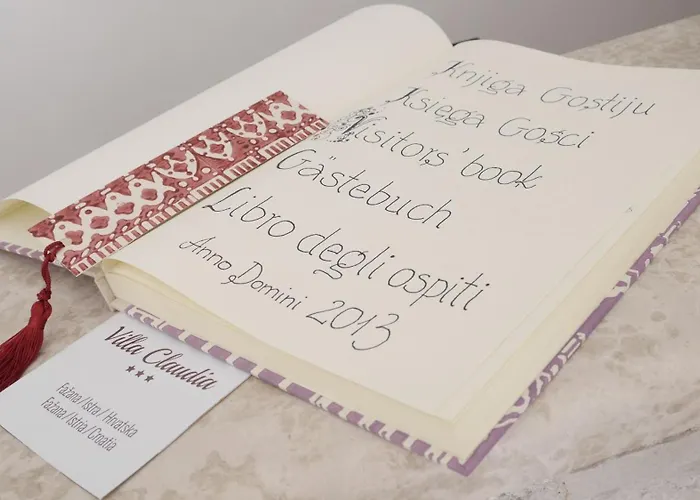 Knjiga Gostiju
Księga Gości
Visitors' book
Gästebuch
Libro degli ospiti
Anno Domini 2013
Villa Claudia
Fažana / Istra / Hrvatska
Fažana / Istria / Croatia